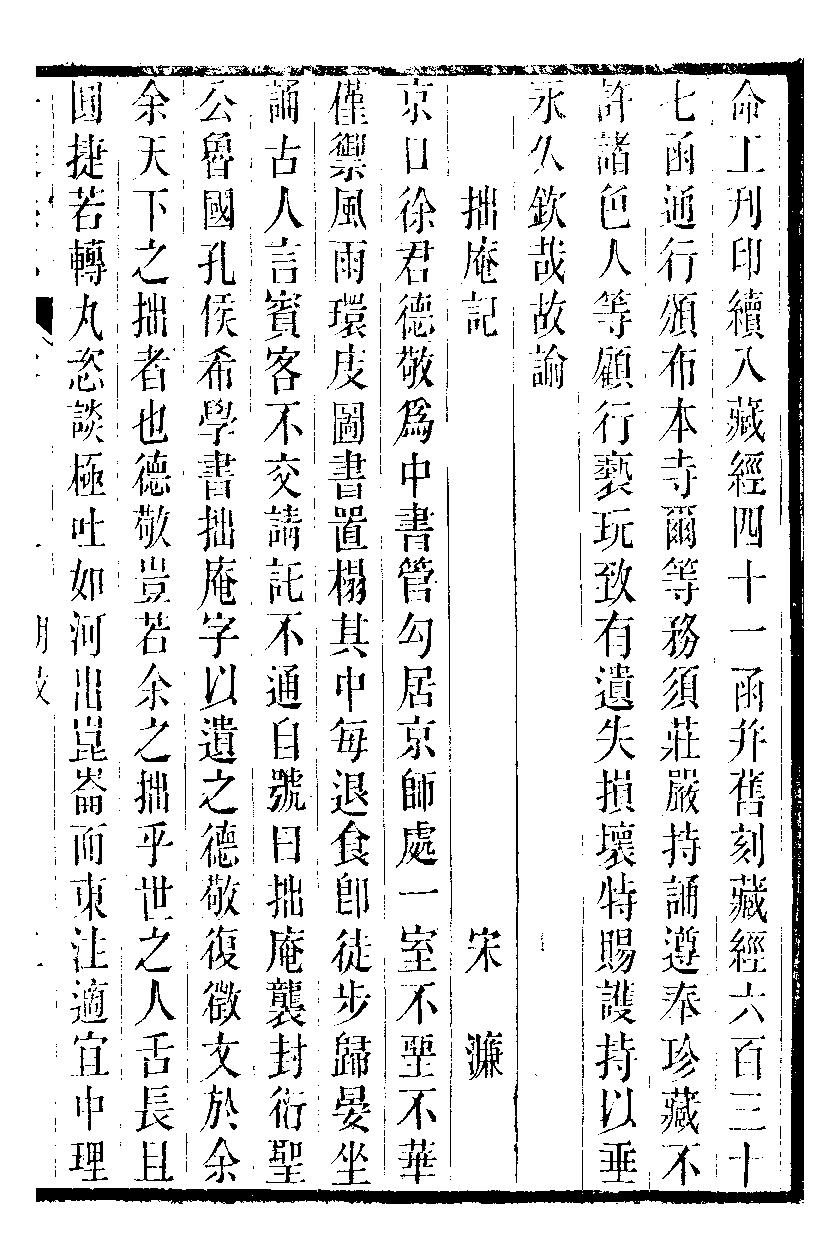 命工刋印續入藏經四十一函幷舊刻藏經六百三十
七函通行頒布本寺爾等務須莊嚴持誦遵奉珍藏不
許諸色人等顧行褻玩致有遺失損壞特賜護持以垂
永久欽哉故諭
拙庵記 宋濂
京口徐君德敬爲中書管勾居京師處一室不堊不華
僅禦風雨環庋圖書置榻其中每退食卽徒步歸晏坐
誦古人言賓客不交請託不通自號曰拙庵襲封衍聖
公魯國孔侯希學書拙庵字以遺之德敬復徵文於余
余天下之拙者也德敬豈若余之拙乎世之人舌長且
圓捷若轉丸恣談極吐如河出崑崙而東注適宜中理